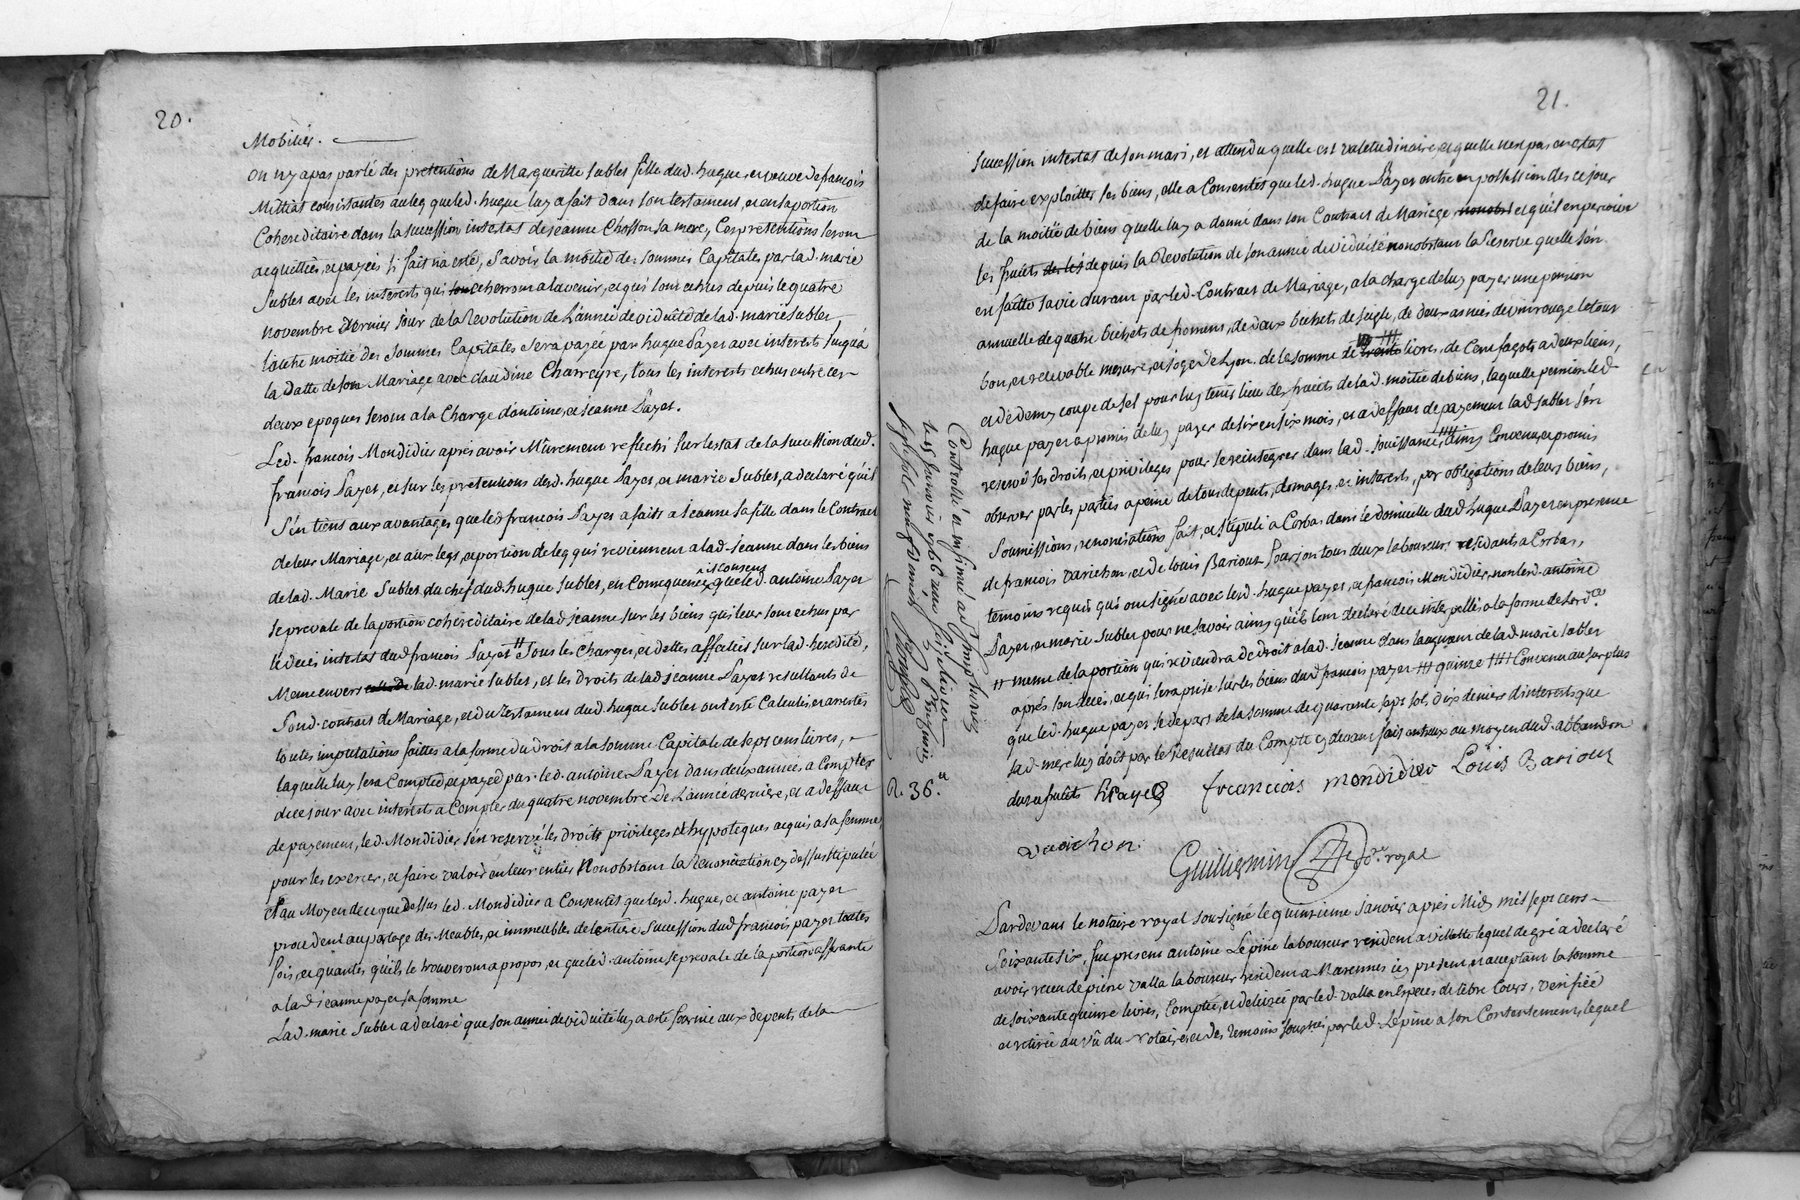 20.
Mobilier.
on ny a pas parlé des pretentions de Margueritte Sublet fille dud. hugue, et veuve de francois
Mittiat consistantes au leg que led. hugue luy a fait dans son testament, et en sa portion
Cohereditaire dans la succession intestat de jeanne Chosson sa mere, Ces pretentions seront
acquittées, et payées si fait n'a esté, Savoir la moitié des sommes Capitales par lad. marie
Sublet avec les interests qui echerront a lavenir, et qui sont echus depuis le quatre
novembre dernier jour de la Revolution de L'année de viduité de lad. marie Sublet,
l'autre moitié des sommes Capitales sera payée par hugue Payet avec interests jusqu'a
la datte de son Mariage avec claudine Charreyre, tous les interests echus entre ces
deux epoques seront a la Charge d'antoine, et jeanne Payet.
Led. francois Mondidier après avoir Mûrement reflechi sur lestat de la succession dud.
francois Payet, et sur les pretentions desd. hugue Payet, et marie Sublet, a declaré qu'il
s'en tient aux avantages que led. francois Payet a faits a jeanne sa fille dans le Contract
de leur Mariage, et aux legs, et portion de leg qui reviennent a lad. jeanne dans les biens
de lad. Marie Sublet du chef dud. hugue Sublet, en Consequence il consent que led. antoine Payet
se prevale de la portion cohereditaire de lad. jeanne sur les biens qui leur sont echus par
le deces intestat dud. francois Payet # Tous les charges, et dettes affectées sur lad. heredité,
Meme envers lad. marie Sublet, et les droits de lad. jeanne Payet resultants de
Sond. contract de Mariage, et du testament dud. hugue Sublet ont esté Calculés, et arrestés
toutes imputations faittes a la forme du droit a la somme Capitale de sept cens livres,
laquelle luy sera Comptée, et payée par led. antoine Payet dans deux années a Compter
de ce jour avec interest a Compter du quatre novembre de L'année derniere, et a deffaut
de payement, led. Mondidier s'en reservé les droits privileges et hypoteques acquis a sa femme,
pour les exercer, et faire valoir en leur entier Nonobstant la Renonciation cy dessus stipulée
et au Moyen de ce que dessus led. Mondidier a Consentit que lesd. hugue, et antoine payet
procedent au partage des Meubles, et immeubles de lentiere succession dud. francois payet toutes
fois, et quantes qu'ils le trouveront a propos, et que led. antoine se prevale de la portion afferante
a lad. jeanne payet sa femme
Lad. marie Sublet a declaré que son année de viduité luy a esté fournie aux depents de la
21.
succession intestat de son mari, et attendu quelle est valetudinaire, et quelle nest pas en estat
de faire exploitter ses biens, elle a Consentit que led. hugue Payet entre en possession des ce jour
de la moitié de biens quelle luy a donné dans son Contract de Mariage, et qu'il en percoive
les fruits depuis la Revolution de son année de viduité nonobstant la Reserve quelle s'en
est faitte sa vie durant par led. Contract de Mariage, a la charge de luy payer une pension
annuelle de quatre bichets de froment, de deux bichets de segle, de deux asnées de vin rouge le tout
bon, et recevable mesure, et joge de Lyon, de la somme de livres, de Cent fagots a deux liens,
et de demy coupe de sel pour luy tenir lieu des fruits de lad. moitié de biens, laquelle pension led.
hugue payet a promis de luy payer de six en six mois, et a deffaut de payement lad. Sublet s'en
reservé ses droits, et privileges pour se reintegrer dans lad. jouissance, ainsy Convenu, et promis
observer par les parties a peine de tous depents, domages, et interests, par obligations de leurs biens,
Soumissions, renonciations fait, et stipulé a Corbas dans le domicille dud. hugue Payet en presence
de francois varichon, et de louis Bariout tous deux laboureurs residants a Corbas,
temoins requis qui ont signé avec lesd. hugue payet, et francois Mondidier, non lesd. antoine
Payet, et marie Sublet pour ne savoir ainsy qu'ils l'ont declaré de ce interpellés a la forme de Lord.ce
# meme de la portion qui reviendra de droit a lad. jeanne dans laugment de lad. marie Sublet
après son deces, et qui sera prise sur les biens dud. francois payet ### quinze #### Convenu au surplus
que led. hugue payet se depart de la somme de quarante sept sol, dix deniers d'interests que
sad. mere luy doit par le Resultat du Compte cy devant fait entr'eux au moyen dud. abbandon
dusufruit h Payet francois mondidier Louis Bariout
varichon.
Guilliermin no.re royal
Controllé et insinué a St Simphorien
le 25 janvier 1766
R. 36.#
Pardevant le notaire royal soussigné le quinzieme janvier après Midy mil sept cens
Soixante six, fut present antoine Lepine laboureur residant a villette lequel de gré a declaré
avoir receu de pierre valla laboureur residant a Marennes icy present et acceptant la somme
de soixante quinze livres, Comptée, et delivrée par led. valla en especes de libre Cours, verifiée
et retirée au vû du Notaire, et des temoins soussignés par led. Lepine a son Contentement, lequel